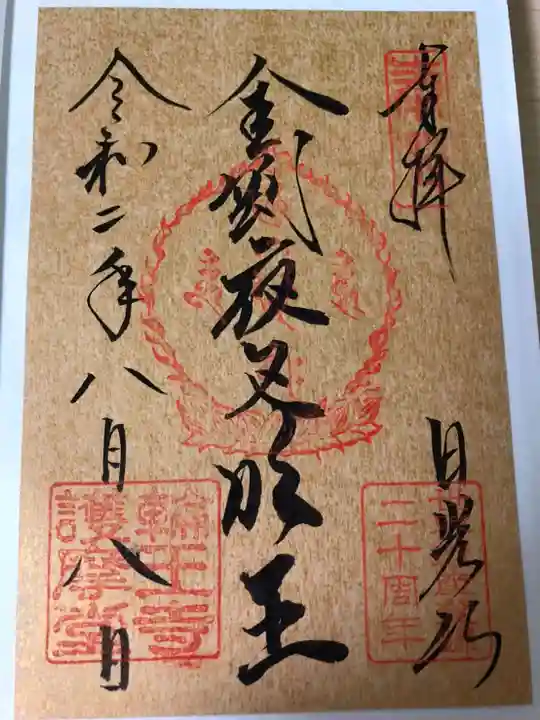 奉拝
日光山
金剛夜叉明王
令和二年八月八日
二十周年
輪王寺
護摩堂